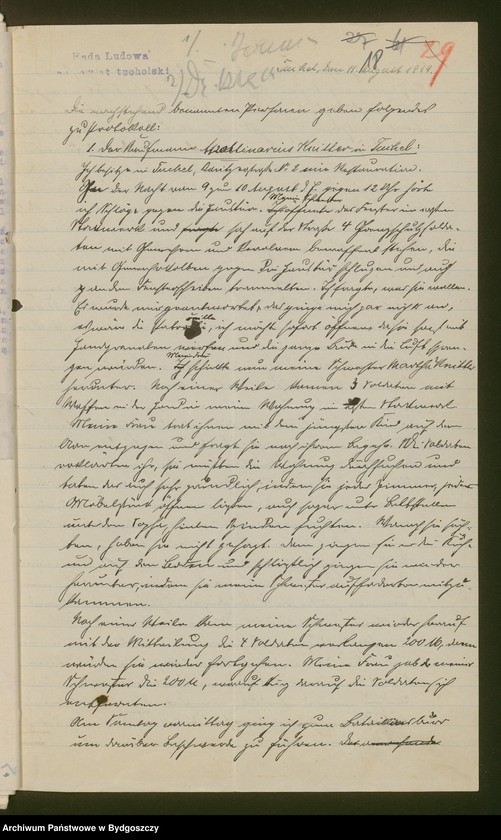 Rada Ludowa
powiat tucholski
18 29
Tuchel, den 11. August 1919.
Die nachstehend benannten Personen geben folgendes
zu Protokoll:
1. Der Kaufmann Apollinarius Knitter in Tuchel:
Ich besitze in Tuchel, № 2 eine Restauration.
In der Nacht vom 9 zu 10 August d. J. gegen 12 Uhr hörte
ich Schläge gegen die Haustür. Meine Schwester öffnete das Fenster im ersten
Stockwerk und sah auf der Straße 4 Grenzschutzsolda-
ten mit Gewehren und Revolvern bewaffnet stehen, die
mit Gewehrkolben gegen die Haustür schlugen und auch
gegen den Fensterscheiben trommelten. Ich fragte, was sie wollen.
Es wurde mir geantwortet, das ginge mich gar nichts an,
es wäre die Patrouille, ich möchte sofort öffnen, da sie sonst mit
Handgranaten werfen und die ganze Bude in die Luft spren-
gen würden. Ich schickte nun meine Schwester Martha Knitter
herunter. Nach einer Weile kamen 3 Soldaten mit
Waffen in der Hand in meine Wohnung im ersten Stockwerk
Meine Frau trat ihnen mit dem jüngsten Kind auf dem
Arm entgegen und fragte sie nach ihrem Begehr. Die Soldaten
erklärten ihr, sie müßten die Wohnung durchsuchen und
taten das auch sehr gründlich, indem sie jedes Zimmer, jedes
Möbelstück öffnen ließen, auch sogar unter Bettstellen
unter dem Sofa, hinter Spinden suchten. Wonach sie such-
ten, haben sie nicht gesagt. Dann gingen sie in die Küche
und auf den Boden und schließlich gingen sie wieder
herunter, indem sie meine Schwester aufforderten mitzu-
kommen.
Nach einer Weile kam meine Schwester wieder herauf
mit der Mitteilung die 4 Soldaten verlangen 200 M, dann
würden sie wieder fortgehen. Meine Frau gab der meiner
Schwester die 200 M, worauf die Soldaten sich
entfernten.
Am Sonntag vormittag ging ich zum Bataillonsbüro
um darüber Beschwerde zu führen.
Archiwum Państwowe w Bydgoszczy